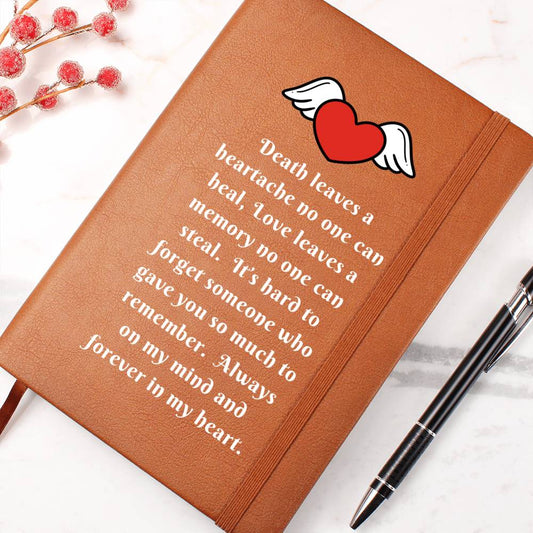 Death leaves a
heartache no one can
heal, Love leaves a
memory no one can
steal.  It's hard to
forget someone who
gave you so much to
remember.  Always
on my mind and
forever in my heart.